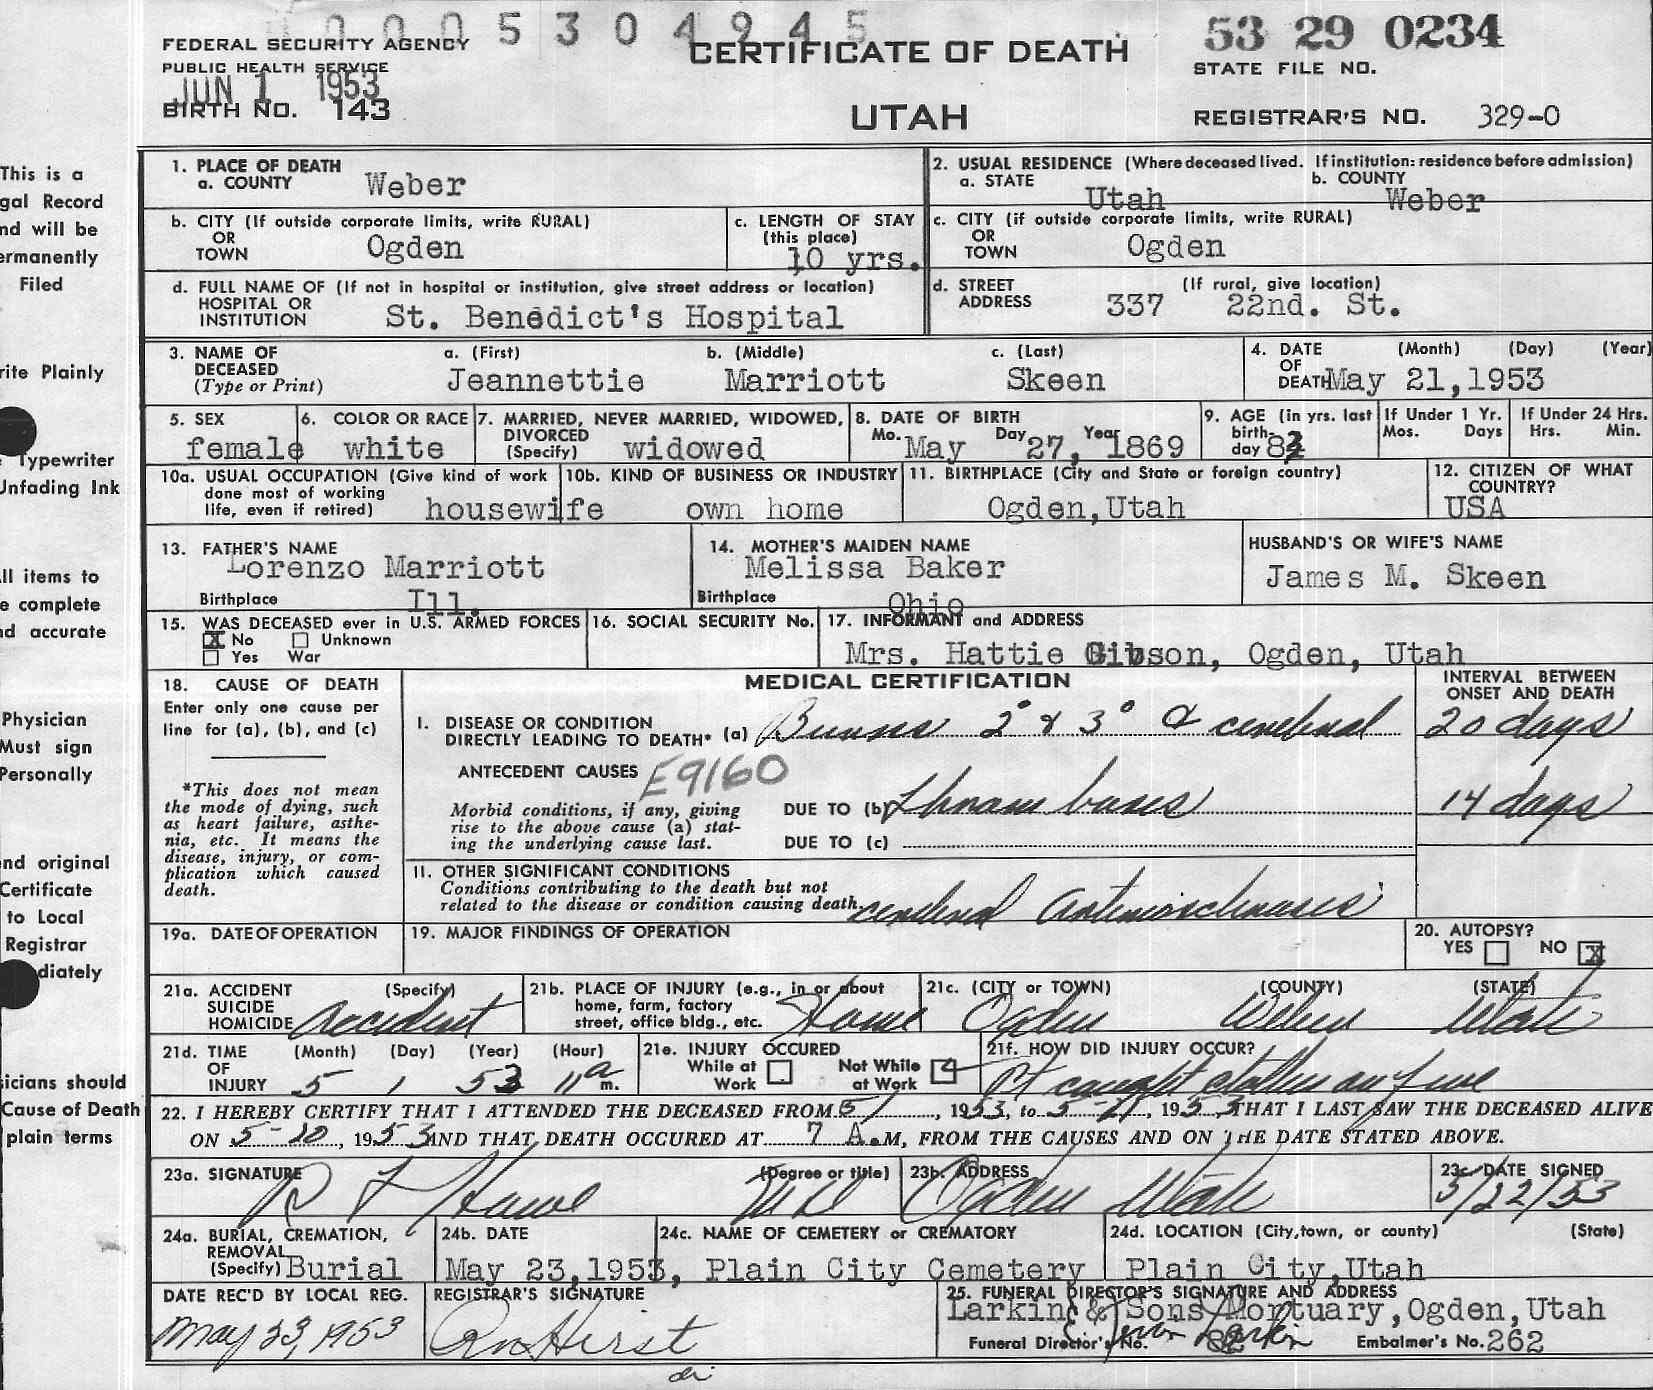 0 0 0 5 3 0 4 9 4 5
FEDERAL SECURITY AGENCY
PUBLIC HEALTH SERVICE
JUN 1 1953
BIRTH NO. 143
CERTIFICATE OF DEATH
UTAH
53 29 0234
STATE FILE NO.
REGISTRAR'S NO. 329-0
This is a
gal Record
nd will be
ermanently
Filed
rite Plainly
Typewriter
Unfading Ink
ll items to
e complete
nd accurate
Physician
Must sign
Personally
nd original
Certificate
to Local
Registrar
diately
icians should
Cause of Death
plain terms
1. PLACE OF DEATH
a. COUNTY Weber
2. USUAL RESIDENCE (Where deceased lived. If institution: residence before admission)
a. STATE Utah b. COUNTY Weber
b. CITY (If outside corporate limits, write RURAL)
OR
TOWN Ogden
c. LENGTH OF STAY
(this place)
10 yrs.
c. CITY (if outside corporate limits, write RURAL)
OR
TOWN Ogden
d. FULL NAME OF (If not in hospital or institution, give street address or location)
HOSPITAL OR
INSTITUTION St. Benedict's Hospital
d. STREET (If rural, give location)
ADDRESS 337 22nd. St.
3. NAME OF a. (First) b. (Middle) c. (Last)
DECEASED
(Type or Print) Jeannettie Marriott Skeen
4. DATE (Month) (Day) (Year)
OF
DEATH May 21,1953
5. SEX
female
6. COLOR OR RACE
white
7. MARRIED, NEVER MARRIED, WIDOWED,
DIVORCED
(Specify) widowed
8. DATE OF BIRTH
Mo. May Day 27, Year 1869
9. AGE (in yrs. last
birth-
day 83
If Under 1 Yr.
Mos. Days
If Under 24 Hrs.
Hrs. Min.
10a. USUAL OCCUPATION (Give kind of work
done most of working
life, even if retired) housewife
10b. KIND OF BUSINESS OR INDUSTRY
own home
11. BIRTHPLACE (City and State or foreign country)
Ogden,Utah
12. CITIZEN OF WHAT
COUNTRY?
USA
13. FATHER'S NAME
Lorenzo Marriott
Birthplace Ill.
14. MOTHER'S MAIDEN NAME
Melissa Baker
Birthplace Ohio
HUSBAND'S OR WIFE'S NAME
James M. Skeen
15. WAS DECEASED ever in U.S. ARMED FORCES
X No Unknown
Yes War
16. SOCIAL SECURITY No.
17. INFORMANT and ADDRESS
Mrs. Hattie Gibson, Ogden, Utah
18. CAUSE OF DEATH
Enter only one cause per
line for (a), (b), and (c)
*This does not mean
the mode of dying, such
as heart failure, asthe-
nia, etc. It means the
disease, injury, or com-
plication which caused
death.
MEDICAL CERTIFICATION
INTERVAL BETWEEN
ONSET AND DEATH
I. DISEASE OR CONDITION
DIRECTLY LEADING TO DEATH* (a) Burns 2° & 3° & cerebral 20 days
ANTECEDENT CAUSES E9160
Morbid conditions, if any, giving
rise to the above cause (a) stat-
ing the underlying cause last.
DUE TO (b) thromboses 14 days
DUE TO (c)
II. OTHER SIGNIFICANT CONDITIONS
Conditions contributing to the death but not
related to the disease or condition causing death. cerebral Arteriosclerosis
19a. DATE OF OPERATION
19. MAJOR FINDINGS OF OPERATION
20. AUTOPSY?
YES NO X
21a. ACCIDENT (Specify)
SUICIDE
HOMICIDE Accident
21b. PLACE OF INJURY (e.g., in or about
home, farm, factory
street, office bldg., etc. Home
21c. (CITY or TOWN) (COUNTY) (STATE)
Ogden Weber Utah
21d. TIME (Month) (Day) (Year) (Hour)
OF
INJURY 5 1 53 11 a m.
21e. INJURY OCCURED
While at Work Not While at Work
21f. HOW DID INJURY OCCUR?
Pt caught clothes on fire
22. I HEREBY CERTIFY THAT I ATTENDED THE DECEASED FROM 5/1, 1953, to 5-21, 1953 THAT I LAST SAW THE DECEASED ALIVE
ON 5-20, 1953 AND THAT DEATH OCCURED AT 7 A.M, FROM THE CAUSES AND ON THE DATE STATED ABOVE.
23a. SIGNATURE (Degree or title)
R L Howe MD
23b. ADDRESS
Ogden Utah
23c. DATE SIGNED
5/22/53
24a. BURIAL, CREMATION,
REMOVAL
(Specify) Burial
24b. DATE
May 23,1953,
24c. NAME OF CEMETERY or CREMATORY
Plain City Cemetery
24d. LOCATION (City,town, or county) (State)
Plain City,Utah
DATE REC'D BY LOCAL REG.
May 23, 1953
REGISTRAR'S SIGNATURE
25. FUNERAL DIRECTOR'S SIGNATURE AND ADDRESS
Larkin & Sons Mortuary,Ogden,Utah
Funeral Director's No. Embalmer's No. 262